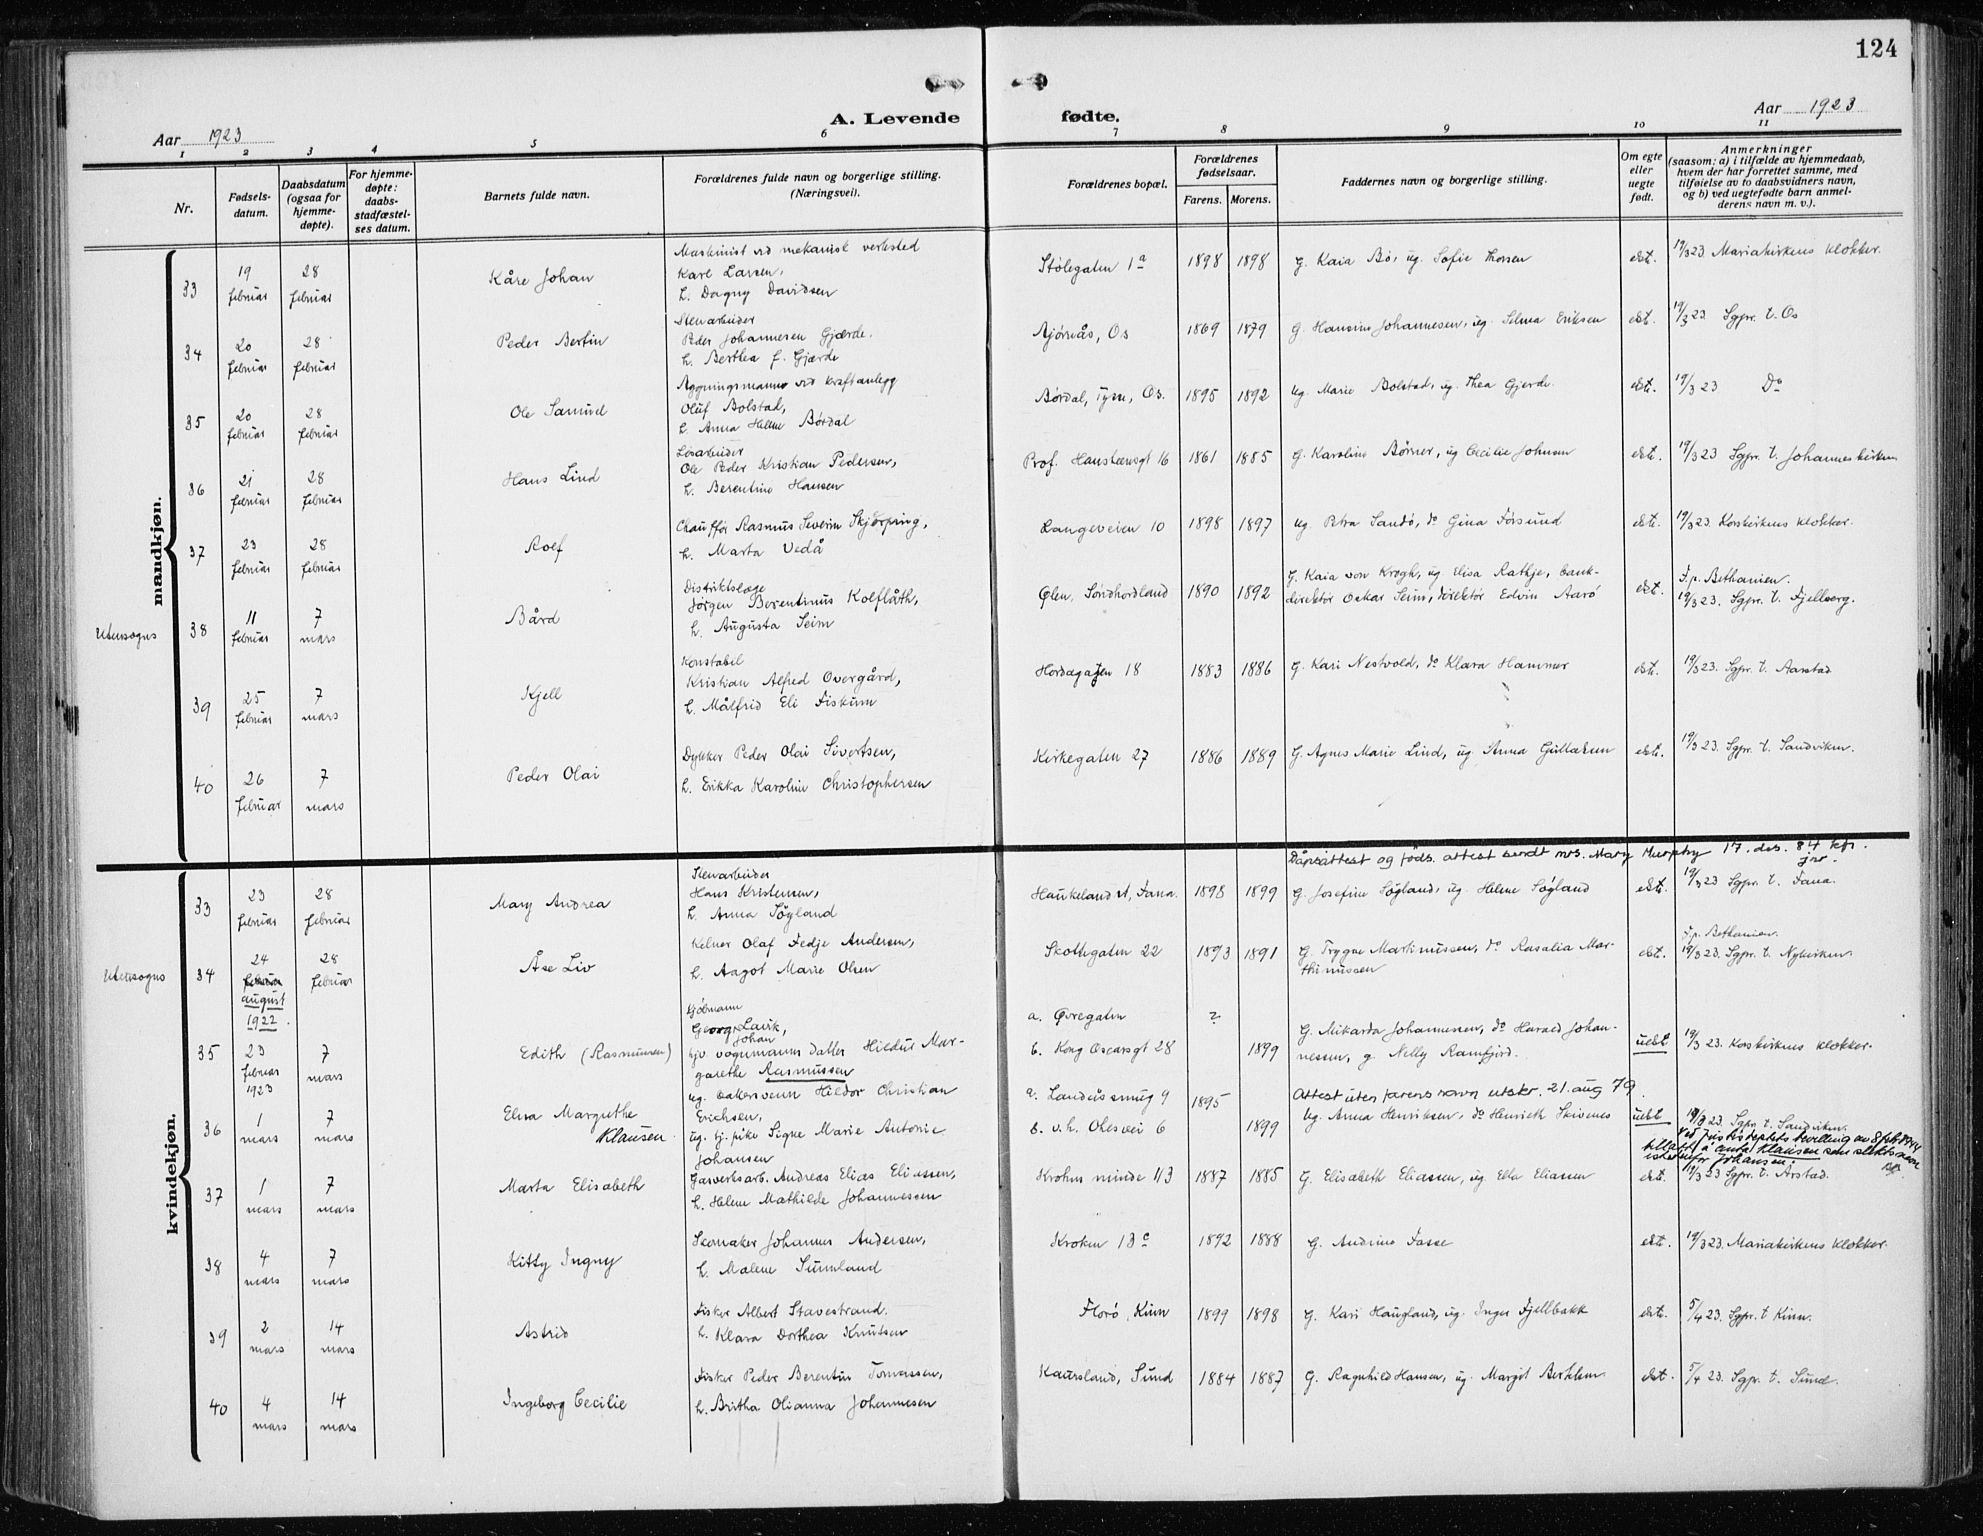 124
A. Levende fødte.
Aar 1923
Aar 1923
1 2 3 4 5 6 7 8 9 10 11
Nr.
Fødsels-
datum.
Daabsdatum
(ogsaa for
hjemme-
døpte).
For hjemme-
døpte:
daabs-
stadfæstel-
ses datum.
Barnets fulde navn.
Forældrenes fulde navn og borgerlige stilling.
(Næringsvei).
Forældrenes bopæl.
Forældrenes
fødselsaar.
Farens. Morens.
Faddernes navn og borgerlige stilling.
Om egte
eller
uegte
født.
Anmerkninger
(saasom: a) i tilfælde av hjemmedaab,
hvem der har forrettet samme, med
tilføielse av to daabsvidners navn,
og b) ved uegtefødte barn anmel-
derens navn m. v.).
mandkjøn.
33 19 februar 28 februar Kåre Johan
Maskinist ved mekanisk verksted
Karl Larsen,
h. Dagny Davidsen
Stølegaten 1a 1898 1898 G. Kaia Bø, ug. Sofie Thorsen ekt. 19/3 23 Mariakirkens klokker.
34 20 februar 28 februar Peder Bertin
Stenarbeider
Peder Johannesen Gjærde.
h. Berthea f. Gjærde
Os 1869 1879 G. Hansine Johannesen, ug. Selma Eriksen ekt. 19/3 23 Sgpr. t. Os
35 20 februar 28 februar Ole Samuel
ved kraftanlegg
Oluf Bolstad,
h. Anna Helene Børdal
Børdal, Os. 1895 1892 Ug. Marie Bolstad, ug. Thea Gjerde. ekt. 19/3 23 Do
36 21 februar 28 februar Hans Lind
Løsarbeider
Ole Peder Kristian Pedersen,
h. Berentine Hansen
Prof. Hansteensgt 16 1861 1885 G. Karoline Børner, ug Cecilie Johnsen ekt. 19/3 23 Sgpr. t. Johanneskirken
37 23 februar 28 februar Rolf
Chauffør Rasmus Severin Skjørping,
h. Marta Vedå
Langeveien 10 1898 1897 Ug. Petra Sandø, do Gina Førsund ekt. 19/3 23. Korskirkens klokker.
Utensogns 38 11 februar 7 mars Bård
Distriktslæge
Jørgen Berentinus Kolflåth,
h. Augusta Seim
Ølen, Søndhordland 1890 1892 G. Kaia von Krogh, ug. Elisa Rathje, bank-
direktør Oskar Seim, direktør Edvin Aarø ekt. F.p. Bethanien.
19/3 23. Sgpr. t. Fjellberg.
39 25 februar 7 mars Kjell
Konstabel
Kristian Alfred Overgård,
h. Målfrid Eli Fiskum
Hordagaten 18 1883 1886 G. Kari Nestvold, do Klara Hammer ekt. 19/3 23. Sgpr. t. Aarstad.
40 26 februar 7 mars Peder Olai
Dykker Peder Olai Sivertsen,
h. Erikka Karoline Christophersen
Kirkegaten 27 1886 1889 G. Agnes Marie Lind, ug. Anna Gullaksen ekt. 19/3 23. Sgpr. t. Sandviken.
kvindekjøn.
Dåpsattest og føds. attest sendt mrs. Mary Murphy 17. des. 84
33 23 februar 28 februar Mary Andrea
Stenarbeider
Hans Kristensen,
h. Anna Søgland
Haukeland st, Fana. 1898 1899 G. Josefine Søgland, ug. Helene Søgland ekt. 19/3 23 Sgpr. t. Fana.
Utensogns 34 24 februar august 1922. 28 februar Åse Liv
Kelner Olaf Fedje Andersen,
h. Aagot Marie Olsen
Skottegaten 22 1893 1891 G. Trygve Martinussen, do Rosalia Mar-
thinussen ekt. F.p. Bethanien.
19/3 23. Sgpr. t. Nykirken.
35 23 februar 1923 7 mars Edith (Rasmussen)
Sjømann
Georg Johan Lavik,
hjv. vognmanns datter Hildur Mar-
garethe Rasmussen
a. Øvregaten ?
b. Kong Oscarsgt 28 1899 G. Mikarda Johannessen, do Harald Johan-
nessen, g. Nelly Ramfjord. uekt 19/3 23. Korskirkens klokker.
Attest uten farens navn utskr. 21. aug 79.
36 1 mars 7 mars Elna Margrethe
Klausen.
ug. bakersvenn Hildor Christian
Erichsen,
ug. tj. pike Signe Marie Antonie
Johansen
a. Landåssmug 9 1895
b. v.h. Olesvei 6 1899 Ug. Anna Henriksen, do Henrich Skivenes uekt 19/3 23. Sgpr. t. Sandviken.
Ved justisdeptets bevilling av
tillatt å anta Klausen som slektsnavn
istedenfor Johansen.
37 1 mars 7 mars Marta Elisabeth
Gasverksarb. Andreas Elias Eliassen,
h. Helene Mathilde Johannessen
Krohns minde 113 1887 1885 G. Elisabeth Eliassen, ug Ella Eliassen ekt. 19/3 23 Sgpr. t. Årstad.
38 4 mars 7 mars Kitty Ingny
Skomaker Johannes Andersen,
h. Malene Sunnland
Kroken 13c 1892 1888 G. Andrine Fasse ekt. 19/3 23. Mariakirkens klokker.
39 2 mars 14 mars Astrid
Fisker Albert Stavestrand.
h. Klara Dorthea Knutsen
Florø, Kinn 1899 1898 G. Kari Haugland, ug. Inger Fjellbakk ekt. 5/4 23. Sgpr. t. Kinn.
40 4 mars 14 mars Ingeborg Cecilie
Fisker Peder Berentin Tomassen,
h. Britha Olianna Johannesen
Kausland, Sund 1884 1887 G. Ragnhild Hansen, ug. Margit ekt. 5/4 23. Sgpr. t. Sund.